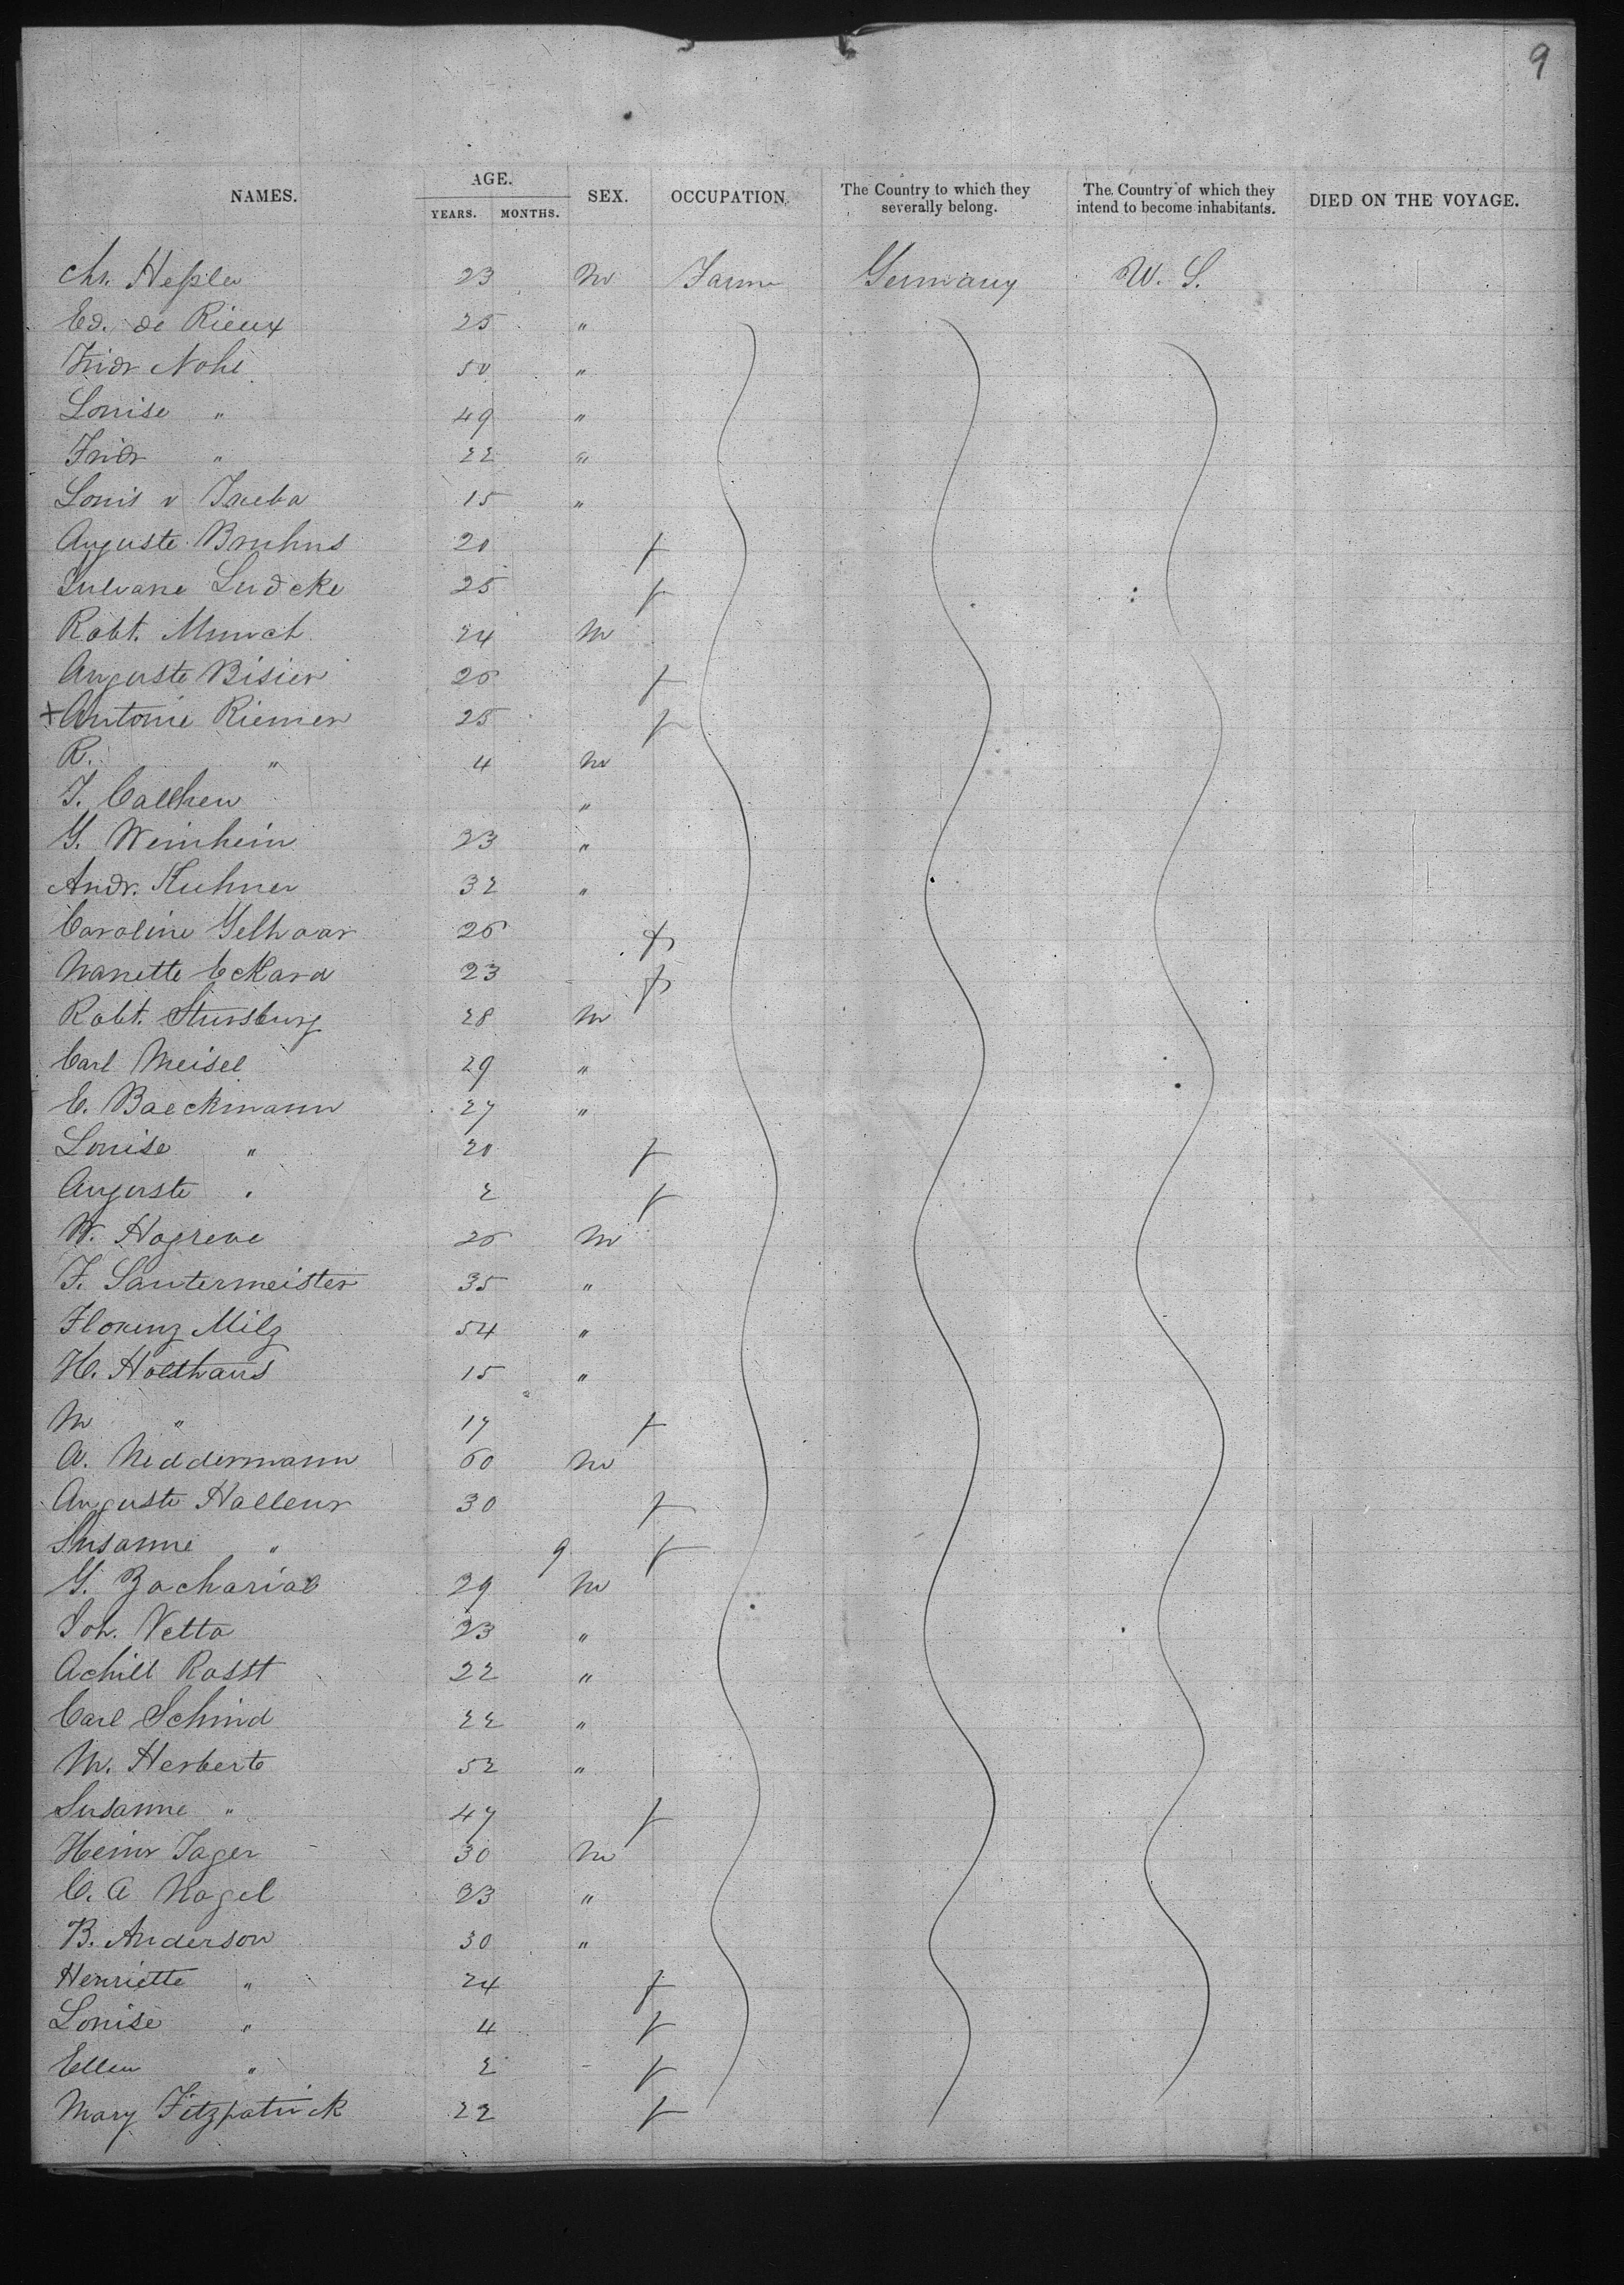 9
NAMES. AGE. YEARS. MONTHS. SEX. OCCUPATION. The Country to which they severally belong. The Country of which they intend to become inhabitants. DIED ON THE VOYAGE.
Chr. Heßler 23 m Farmer Germany U. S.
Ed. de Rieux 25 "
Fridr Nohl 50 "
Louise " 49 "
Fridr " 22 "
Louis v 15 "
Auguste Bruhns 20 f
Juliane Ludcke 25 f
Robt. Munch 24 m
Auguste Bisier 26 f
+Antonie Riemer 25 f
R. " 4 m
"
G. Weinheim 23 "
Andr. Kuhner 32 "
Caroline Gelhaar 26 f
Nanette Eckard 23 f
Robt. Stursburg 28 m
Carl Meisel 29 "
C. Baeckmann 27 "
Louise " 20 f
Auguste " 2 f
W. Hogreve 26 m
F. Santermeister 35 "
Florenz Milz 54 "
H. Holthaus 15 "
M " 17 f
A. Neddermann 60 m
Auguste Halleur 30 f
Susanne " 9 f
G. Zacharias 29 m
Joh. Vetta 23 "
Achill Rosst 22 "
Carl Schind 22 "
M. Herberts 52 "
Susanne " 47 f
Heinr Jager 30 m
C. A Nagel 23 "
B. Anderson 30 "
Henriette " 24 f
Louise " 4 f
Ellen " 2 f
Mary Fitzpatrick 22 f